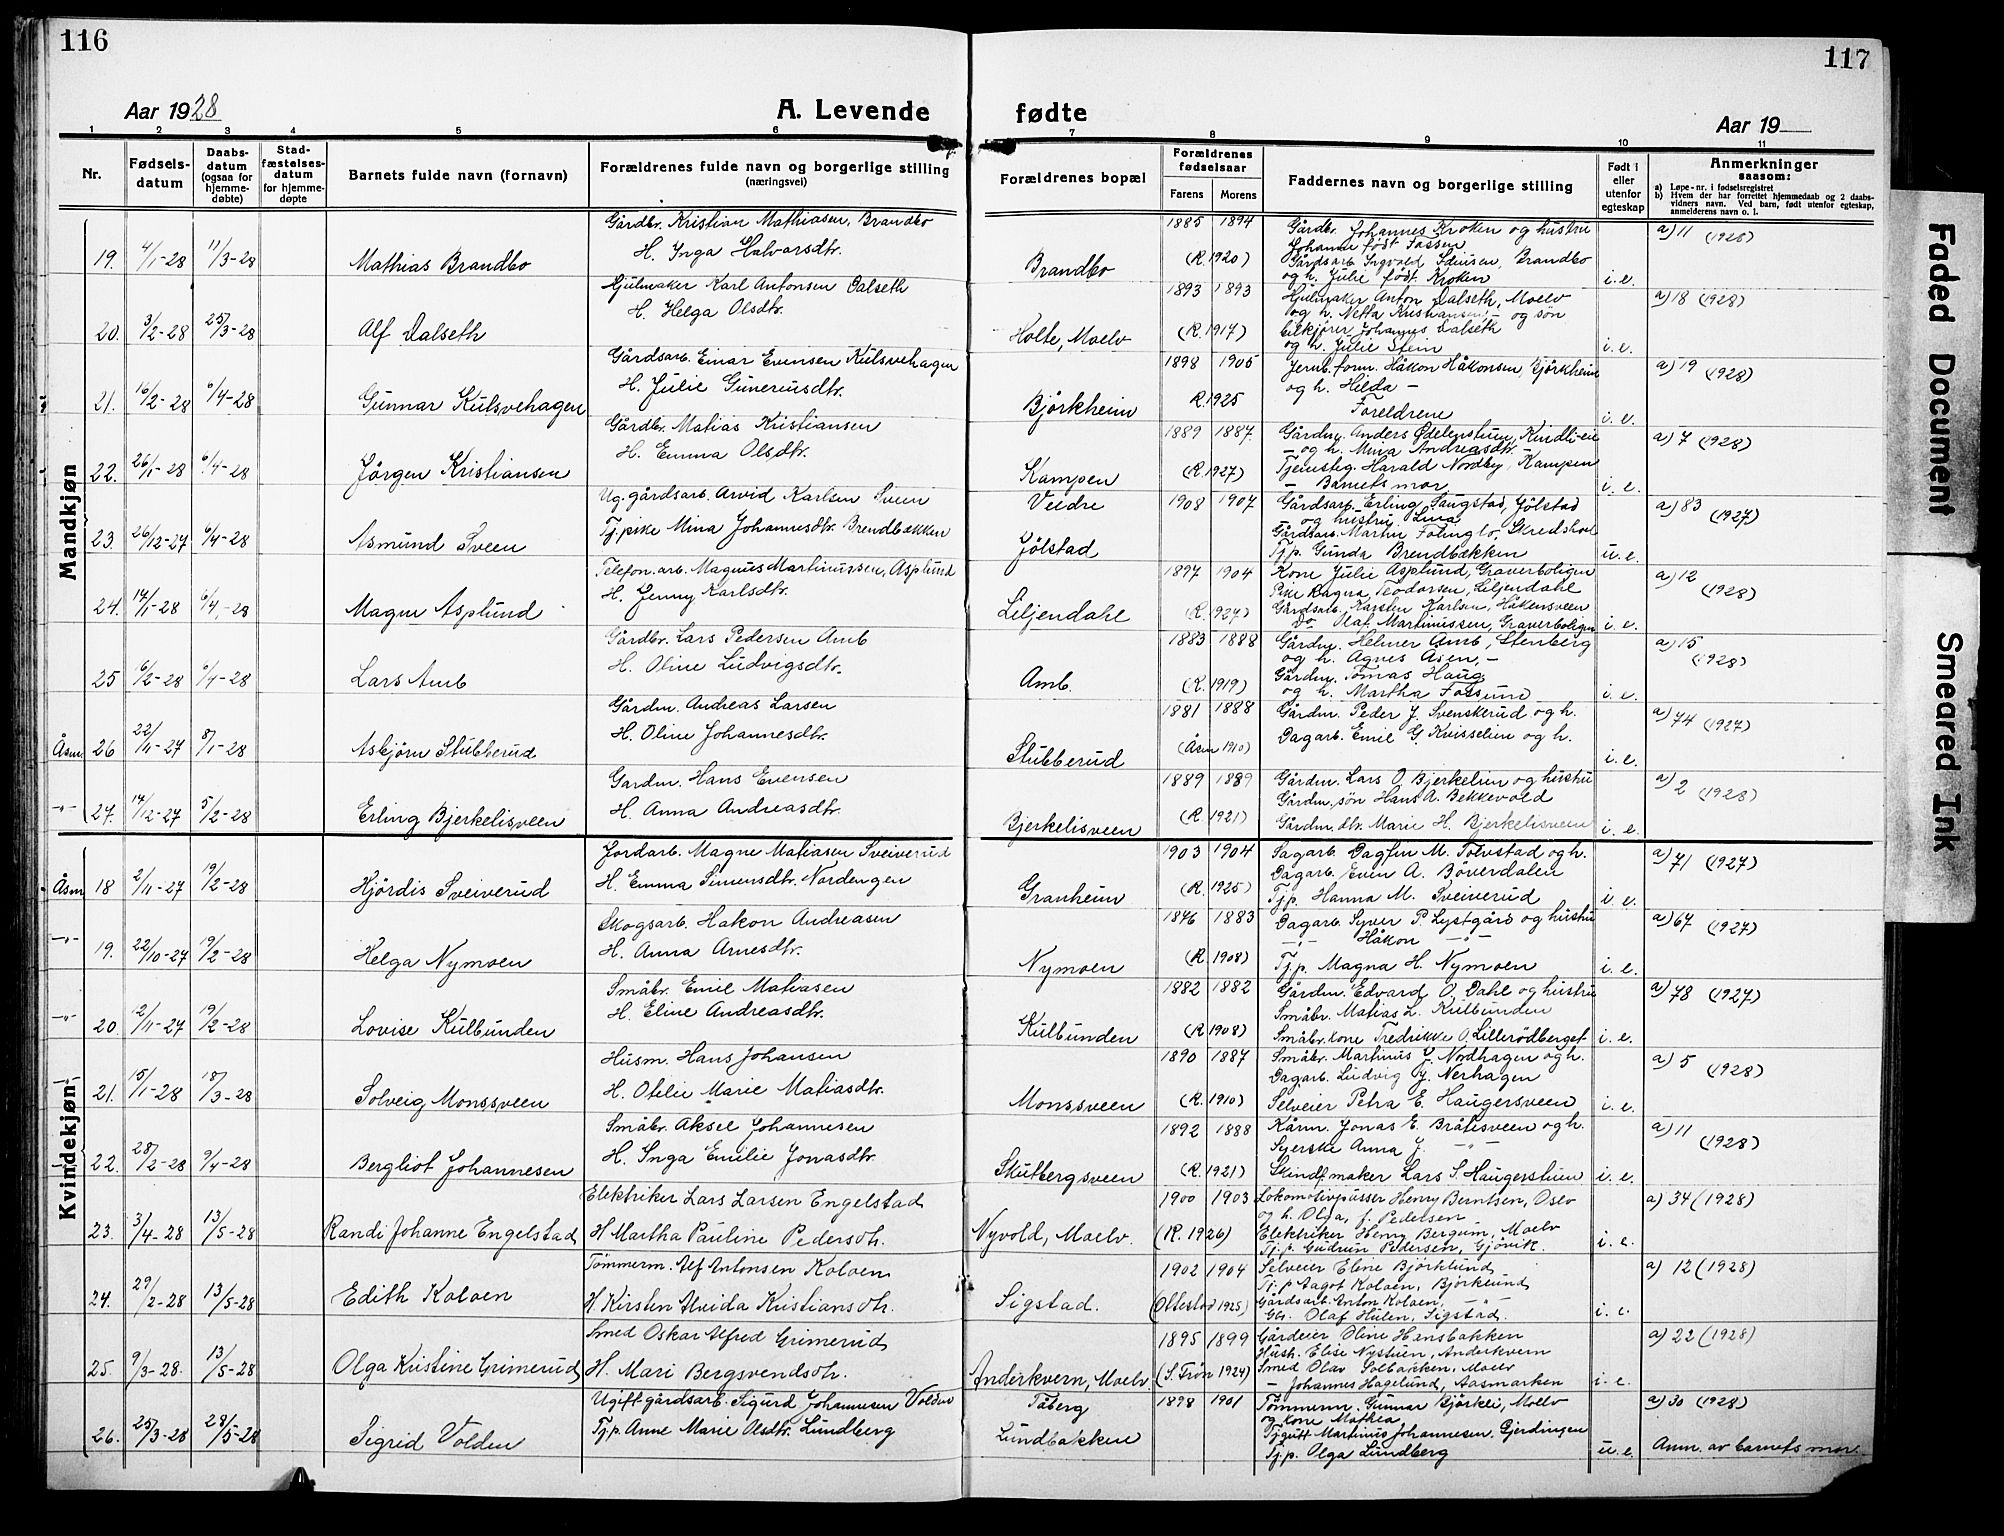 116
117
Aar 1928
A. Levende
fødte
Aar 19
1 2 3 4 5 6 7 8 9 10 11
Nr.
Fødsels-
datum
Daabs-
datum
(ogsaa for
hjemme-
døbte)
Stad-
fæstelses-
datum
for hjemme-
døpte
Barnets fulde navn (fornavn)
Forældrenes fulde navn og borgerlige stilling
(næringsvei)
Forældrenes bopæl
Forældrenes
fødselsaar
Farens Morens
Faddernes navn og borgerlige stilling
Født i
eller
utenfor
egteskap
Anmerkninger
saasom:
a) Løpe-nr. i fødselsregistret
b) Hvem der har forrettet hjemmedaab og 2 daabs-
vidners navn. Ved barn, født utenfor egteskap,
anmelderens navn o. l.
Mandkjøn
Gårdbr. Kristian Mathiasen, Brandbo 1885 1894 Gårdbr. Johannes Kroken og hustru a) 11 (1928)
Johanne født Fossen
19. 4/1-28 11/3-28 Mathias Brandbo H. Inga Halvarsdtr. Brandbo (R. 1920) Gårdsarb. Ingvald Brandbo
og h. Julie født Kroken i.e.
Hjulmaker Karl Antonsen Dalseth 1893 1893 Hjulmaker Anton Dalseth, Moelv a) 18 (1928)
og h. Netta Kristiansen, og søn
20. 3/2-28 25/3-28 Alf Dalseth H. Helga Olsdtr. Holte, Moelv (R. 1917) bilkjører Johannes Dalseth
og h. Julie Stein i.e.
Gårdsarb. Einar Evensen Kulsvehagen 1898 1905 Jernb.form. Håkon Håkonsen, Björkheim a) 19 (1928)
og h. Hilda -
21. 16/2-28 6/4-28 Gunnar Kulsvehagen H. Julie Guneriusdtr. Björkheim R. 1925 Foreldrene i.e.
Gårdbr. Matias Kristiansen 1889 1887 Gårdm. Anders Ödelenstuen, Kindli-eie a) 7 (1928)
- og h. Mina Andreasdtr. -
22. 26/1-28 6/4-28 Jörgen Kristiansen H. Emma Olsdtr. Kampen (R. 1927) Tjenestg. Harald Nordby, Kampen
- Barnets mor i.e.
Ug. gårdsarb. Arvid Karlsen Sveen Veldre 1908 1907 Gårdsarb. Erling Saugstad, Jölstad a) 83 (1927)
og hustru Lina
23. 26/12-27 6/4-28 Asmund Sveen Tj. pike Mina Johannesdtr. Brendbækken Jölstad Gårdsarb. Martin
Tj.p. Gunda Brendbækken u.e.
Telefon.arb. Magnus Martinussen, Asplund 1897 1904 Kone Julie Asplund, Graverboligen a) 12 (1928)
Pike Ragna Teodorsen, Liljendahl
24. 14/1-28 6/4-28 Magne Asplund H. Jenny Karlsdtr. Liljendahl (R. 1924) Gårdsarb. Karsten Karlsen, Håkensveen
do Olaf Martinussen, Graverboligen i.e.
Gårdbr. Lars Pedersen Amb 1883 1888 Gårdm. Helmer Amb, Stenberg a) 15 (1928)
og h. Agnes Åsen, -
25 6/2-28 6/4-28 Lars Amb H. Oline Ludvigsdtr. Amb. (R. 1919) Gårdm. Tomas Haug
og h. Martha Fossum i.e.
Gårdm. Andreas Larsen 1881 1888 Gårdm. Peder J. Svenskerud og h. a) 74 (1927)
Åsm. 26 22/11-27 8/1-28 Asbjörn Stubberud H. Oline Johannesdtr. Stubberud (Åsm 1910) Dagarb. Emil G. Kvisselien og h. i.e.
Gardm. Hans Evensen 1889 1889 Gårdm. Lars O. Bjerkelien og hustru a) 2 (1928)
Gårdm. søn Hans A. Bekkevold
-"- 27. 14/12-27 5/2-28 Erling Bjerkelisveen H. Anna Andreasdtr. Bjerkelisveen (R. 1921) Gårdm. dtr. Marie H. Bjerkelisveen i.e.
Kvindekjøn
Jordarb. Magne Matiasen Sveiverud 1903 1904 Sagarb. Dagfin M. Tolvstad og h. a) 71 (1927)
Dagarb. Even A. Böverdalen
Åsm 18 2/11-27 19/2-28 Hjördis Sveiverud H. Emma Simensdtr. Nordengen Granheim (R. 1925) Tj.p. Hanna M. Sveiverud i.e.
Skogsarb. Håkon Andreasen 1876 1883 Dagarb. Syver P. Lystgård og hustru a) 67 (1927)
-"- Håkon -"-
-"- 19. 22/10-27 19/2-28 Helga Nymoen H. Anna Arnesdtr. Nymoen (R. 1908) Tj.p. Magna H. Nymoen i.e.
Småbr. Emil Matiasen 1882 1882 Gårdm. Edvard O. Dahl og hustru a) 78 (1927)
Småbr. Matias L. Kulbunden
-"- 20. 12/11-27 19/2-28 Lovise Kulbunden H. Eline Andreasdtr. Kulbunden (R 1908) Småbr. kone Fredrikke O. Lillerödberget i.e.
Husm. Hans Johansen 1890 1887 Småbr. Martinus J. Nordhagen og h. a) 5 (1928)
Dagarb. Ludvig J. Nerhagen
21. 15/1-28 18/3-28 Solveig Monssveen H. Otilie Marie Matiasdtr. Monssveen (R. 1910) Selveier Petra E. Haugersveen i.e.
Småbr. Aksel Johannesen 1892 1888 Kårm. Jonas E. Bråtisveen og h. a) 11 (1928)
Syerske Anna J. -"-
22. 28/2-28 9/4-28 Bergliot Johannesen H. Inga Emilie Jonasdtr. Skutbergsveen (R. 1921) Skindf.maker Lars S. Haugerstuen i.e.
Elektriker Lars Larsen Engelstad 1900 1903 Lokomotivpusser Henry Berntsen, Oslo a) 34 (1928)
og h. Olga, f. Pedersen
23. 3/4-28 13/5-28 Randi Johanne Engelstad H. Martha Pauline Pedersdtr. Nyvold, Moelv. (R. 1926) Elektriker Henry Bergum, Moelv
Tj.p. Gudrun Pedersen, Gjövik. i.e.
Tömmerm. Alf Antonsen Koloen 1902 1904 Selveier Eline Björklund a) 12 (1928)
Tj.p. Aagot Koloen, Björklund
24. 29/2-28 13/5-28 Edith Koloen H. Kirsten Alvida Kristiansdtr. Sigstad. (Ottestad 1925) Gårdsarb. Anton Koloen, -"-
Olaf Hulen, Sigstad. i.e.
Smed Oskar Alfred Grimerud 1895 1899 Gårdeier Oline Hensbakken a) 22 (1928)
Hush. Elise Nystuen, Anderkvern
25. 9/3-28. 13/5-28 Olga Kristine Grimerud H. Mari Bergsvendsdtr. Anderkvern, Moelv. (S. Fron 1924) Smed Olav Solbakken, Moelv
- Johannes Hagelund, Aasmarken i.e.
Ugift gårdsarb. Sigurd Johannesen Volden Fåberg 1898 1901 Tömmerm. Gunnar Björkli, Moelv a) 30 (1928)
og kone Mathea
26. 25/3-28 28/5-28 Sigrid Volden Tj.p. Anne Marie Olsdtr. Lundberg Lundbakken Tjgutt Martinus Johannesen, Gjerdingen
Tj.p. Olga Lundberg u.e. Anm. av barnets mor.
Faded Document
Smeared Ink